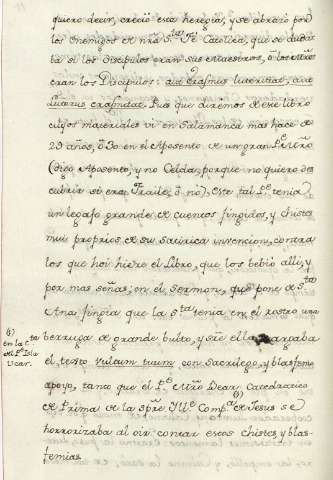 quiero decir, creció esta heregia, y se abrazó por
los enemigos de nrã S.ta Fe Catolica, que se dudaba
ba si los discipulos eran sus maestros, ò los mrõs
eran los Discipulos: aut Erasmus luterizat, aut
lutherus erasmizat. Pues que diremos de este libro
cuyos materiales vi en Salamanca mas hace de
29 años, ò 30 en el Aposento de un gran P.e Mrõ
(digo Aposento, y no Celda, porque no quiero des
cubrir si era Fraile, ò no). Este tal P.e tenia
un legajo grande de cuentos fingidos, y chistes
mui proprios de su satirica invencion, contra
los que hoi hiere el Libro, que los bebió alli, y
por mas señas, en el sermon, que pone de S.ta
Ana fingia que la S.ta tenia en el rostro una
berruga de grande bulto, y sre ella cargaba
el texto vultum tuum con sacrilego, y blasfemo
apoyo, tanto que el P.e Mrõ Dear, Catedratico
de Prima de la spre Ill.e Comp.a de Jesus se
horrorizaba al oir contar estos chistes, y blas-
femias.
en la c.ta
del P.e Isla